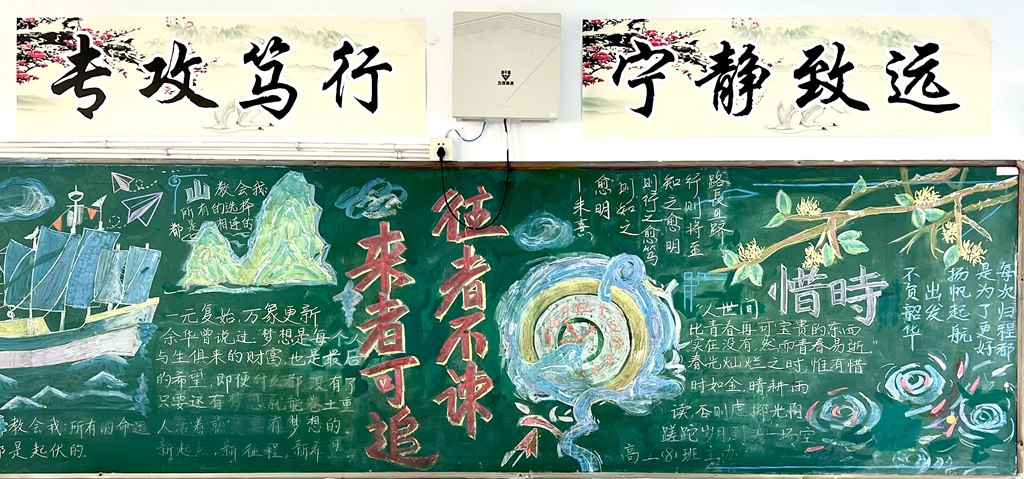 专攻笃行
宁静致远
山教会我:
所有的选择
都是相连的
往者不谏
来者可追
一元复始,万象更新
余华曾说过:梦想是每个人
与生俱来的财富,也是最后
的希望。即便什么都没有了
只要还有梦想就能卷土重
人活着就要有梦想的。
新起点,新征程,新希望。
教会我:所有的命运
都是起伏的。
路長且路
行则将至
知之愈明
则行之愈笃
则知之
愈明
—朱熹
惜时
“人世间
比青春再可宝贵的东西
实在没有,然而青春易逝。”
春光灿烂之时,惟有惜
时如金,晴耕雨
读,否则虚掷光阴
蹉跎岁月,到头一场空
高二(8)班
每次归程都
是为了更好
出发
扬帆起航
不负韶华